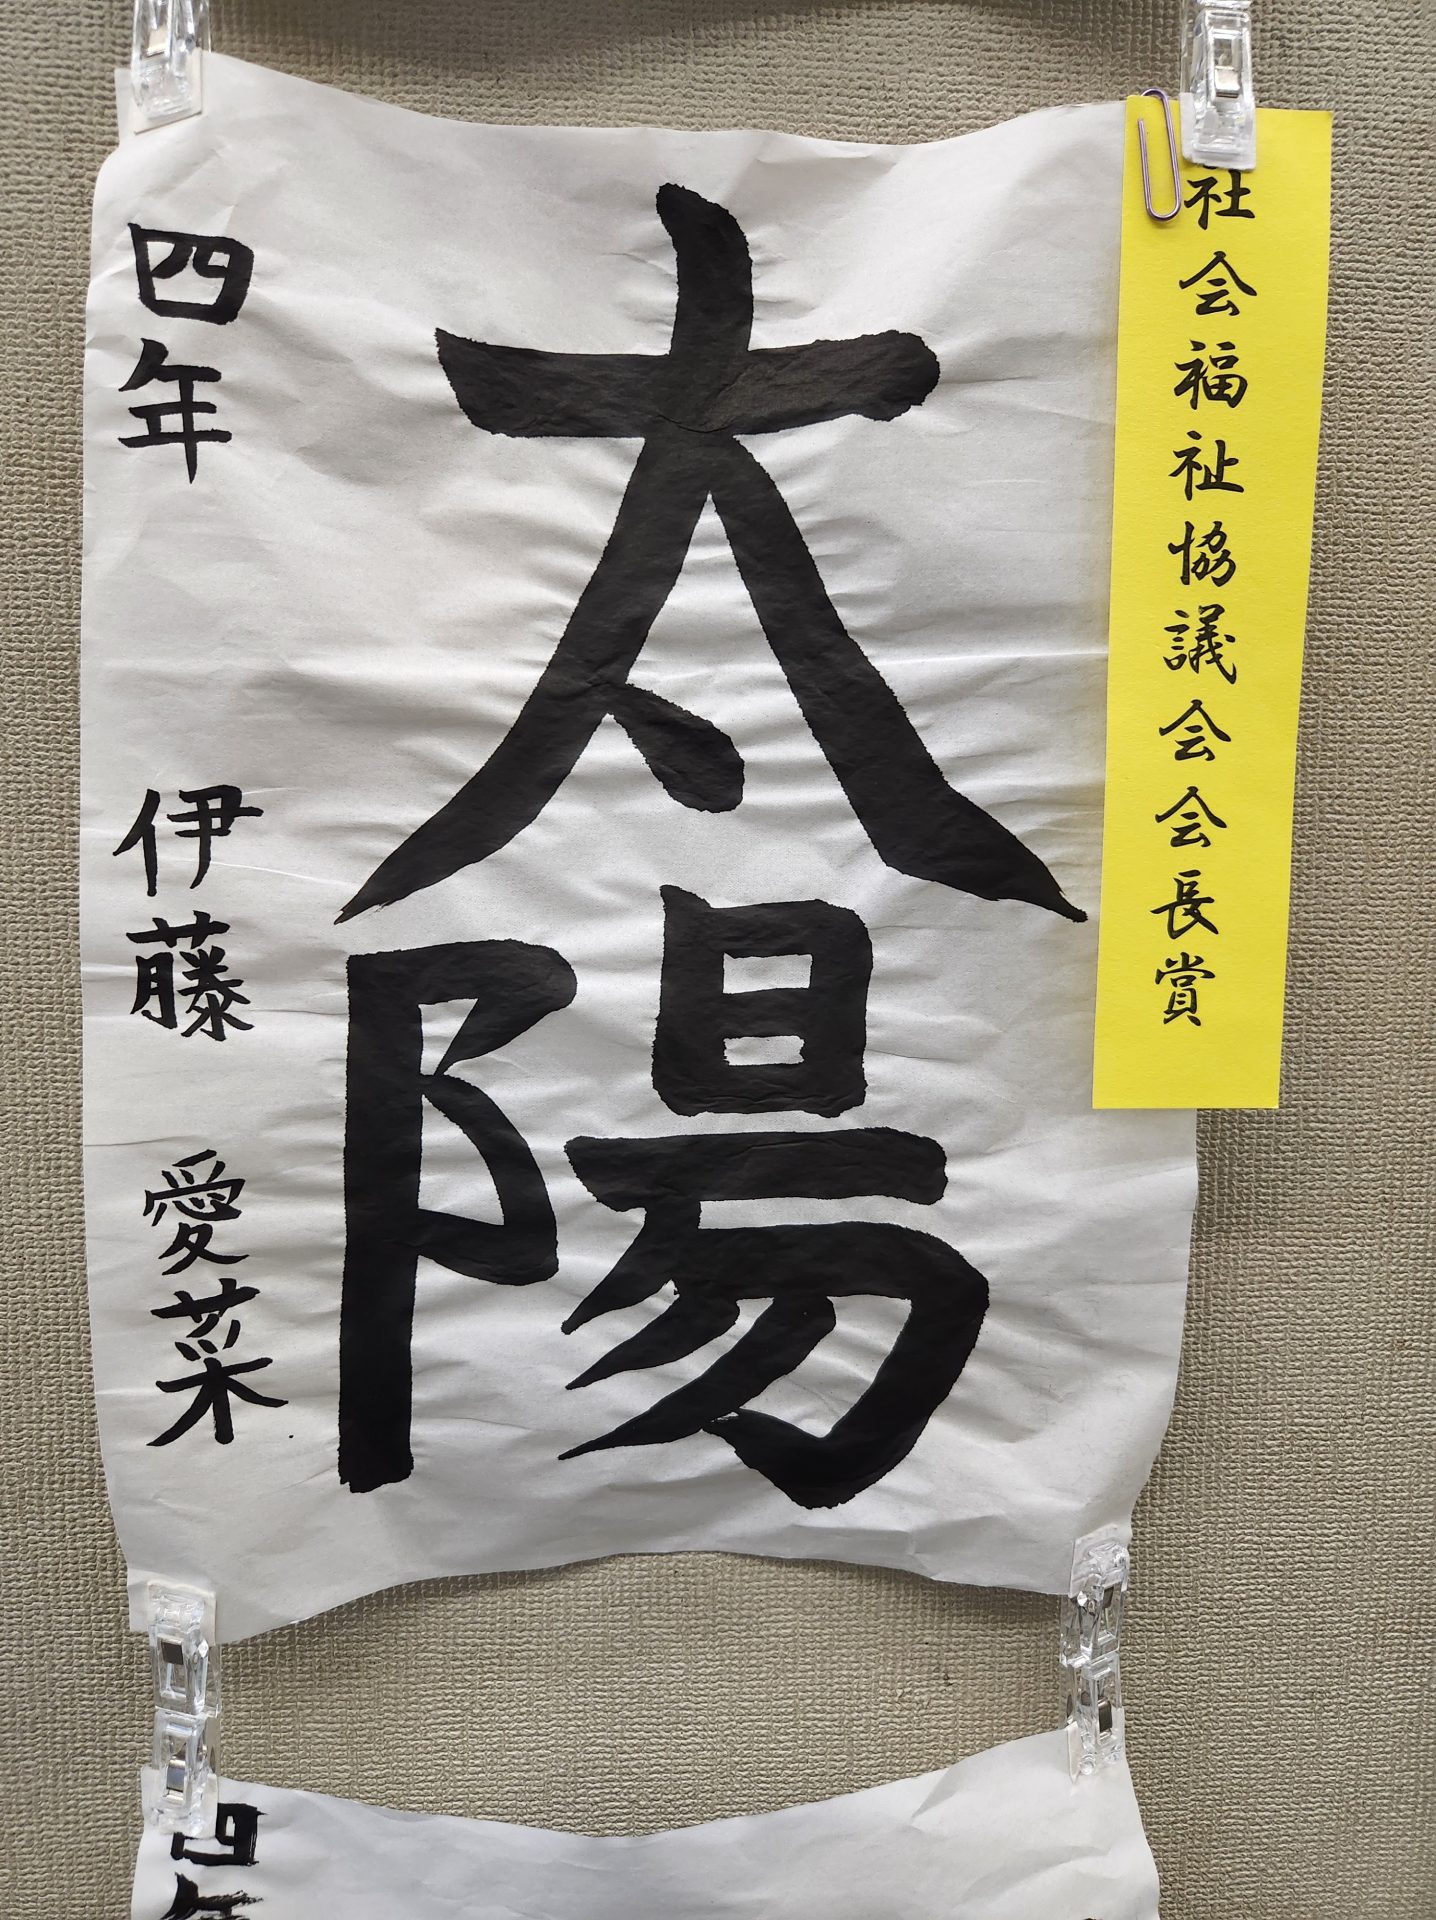 社会福祉協議会会長賞
太陽
四年 伊藤 愛菜
四年